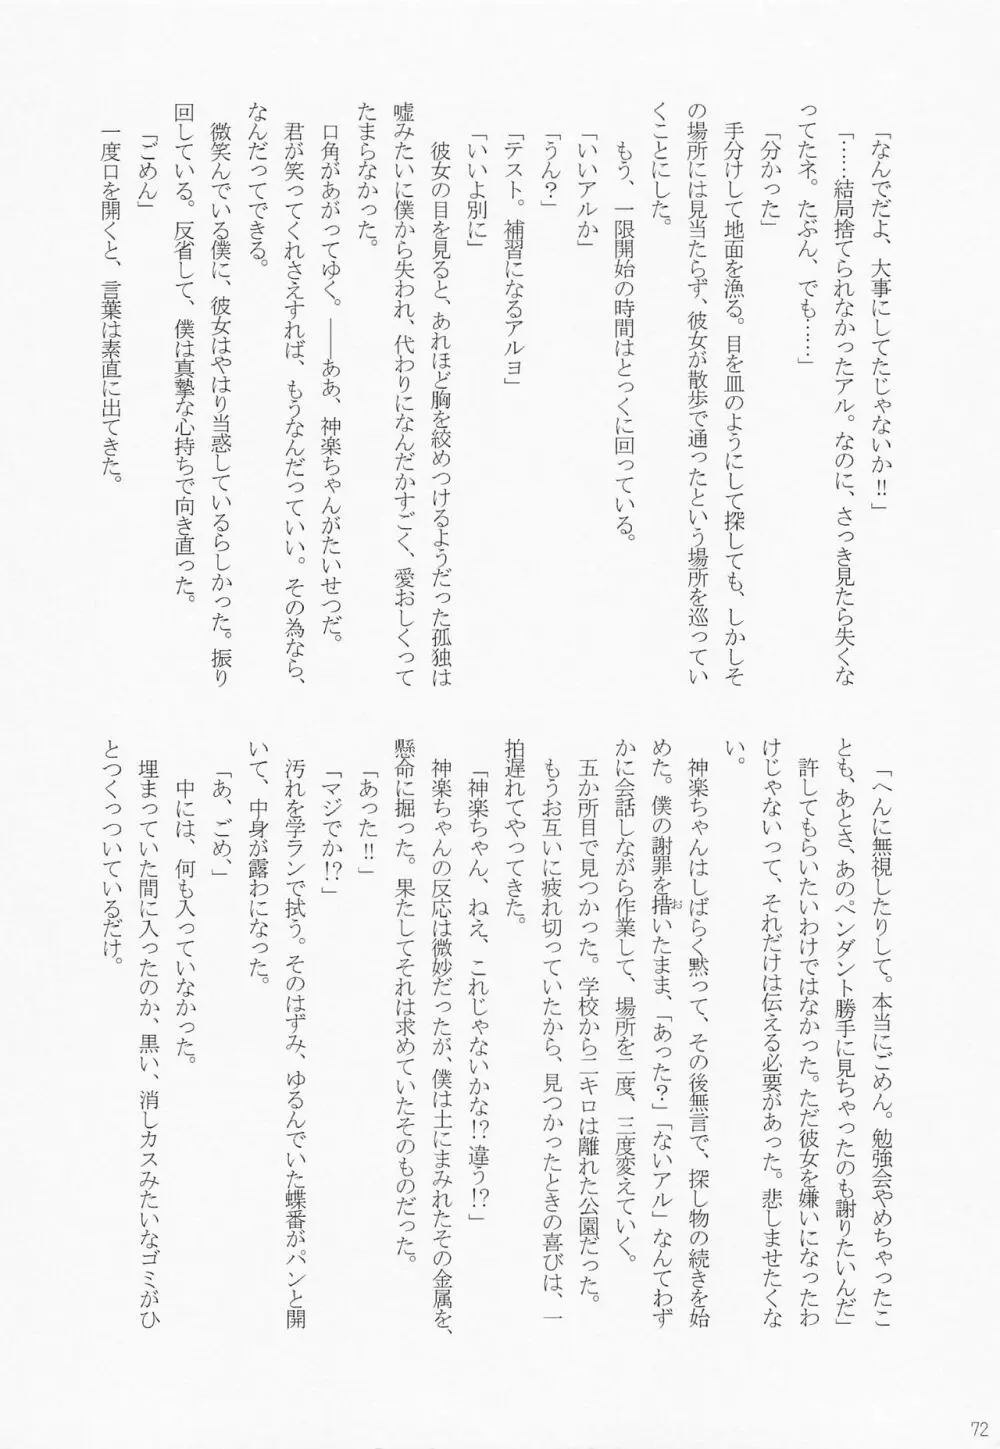 「なんでだよ、大事にしてたじゃないか!!」
「……結局捨てられなかったアル。なのに、さっき見たら失くな
ってたネ。たぶん、でも……」
「分かった」
手分けして地面を漁る。目を皿のようにして探しても、しかしそ
の場所には見当たらず、彼女が散歩で通ったという場所を巡ってい
くことにした。
もう、一限開始の時間はとっくに回っている。
「いいアルか」
「うん?」
「テスト。補習になるアルヨ」
「いいよ別に」
彼女の目を見ると、あれほど胸を絞めつけるようだった孤独は
嘘みたいに僕から失われ、代わりになんだかすごく、愛おしくって
たまらなかった。
口角があがってゆく。――ああ、神楽ちゃんがたいせつだ。
君が笑ってくれさえすれば、もうなんだっていい。その為なら、
なんだってできる。
微笑んでいる僕に、彼女はやはり当惑しているらしかった。振り
回している。反省して、僕は真摯な心持ちで向き直った。
「ごめん」
一度口を開くと、言葉は素直に出てきた。
「へんに無視したりして。本当にごめん。勉強会やめちゃったこ
とも、あとさ、あのペンダント勝手に見ちゃったのも謝りたいんだ」
許してもらいたいわけではなかった。ただ彼女を嫌いになったわ
けじゃないって、それだけは伝える必要があった。悲しませたくな
い。
神楽ちゃんはしばらく黙って、その後無言で、探し物の続きを始
めた。僕の謝罪を措おいたまま、「あった?」「ないアル」なんてわず
かに会話しながら作業して、場所を二度、三度変えていく。
五か所目で見つかった。学校から二キロは離れた公園だった。
もうお互いに疲れ切っていたから、見つかったときの喜びは、一
拍遅れてやってきた。
「神楽ちゃん、ねえ、これじゃないかな!?違う!?」
神楽ちゃんの反応は微妙だったが、僕は土にまみれたその金属を、
懸命に掘った。果たしてそれは求めていたそのものだった。
「あった!!」
「マジでか!?」
汚れを学ランで拭う。そのはずみ、ゆるんでいた蝶番がパンと開
いて、中身が露わになった。
「あ、ごめ、」
中には、何も入っていなかった。
埋まっていた間に入ったのか、黒い、消しカスみたいなゴミがひ
とつくっついているだけ。
72